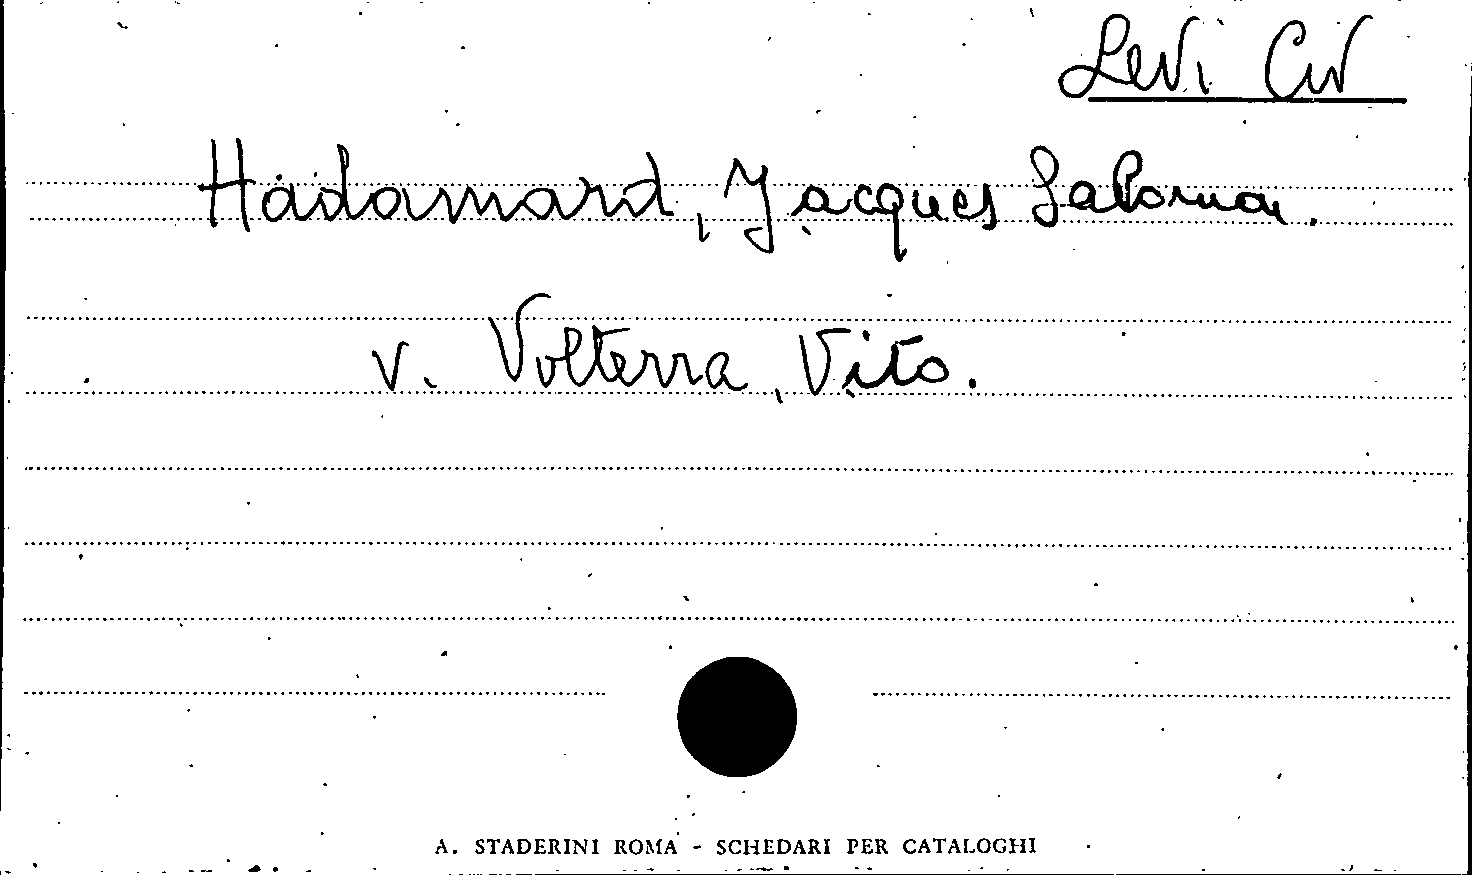 Levi Civ
Hadamard, Jacques Salomon.
v. Volterra, Vito.
A. STADERINI ROMA - SCHEDARI PER CATALOGHI